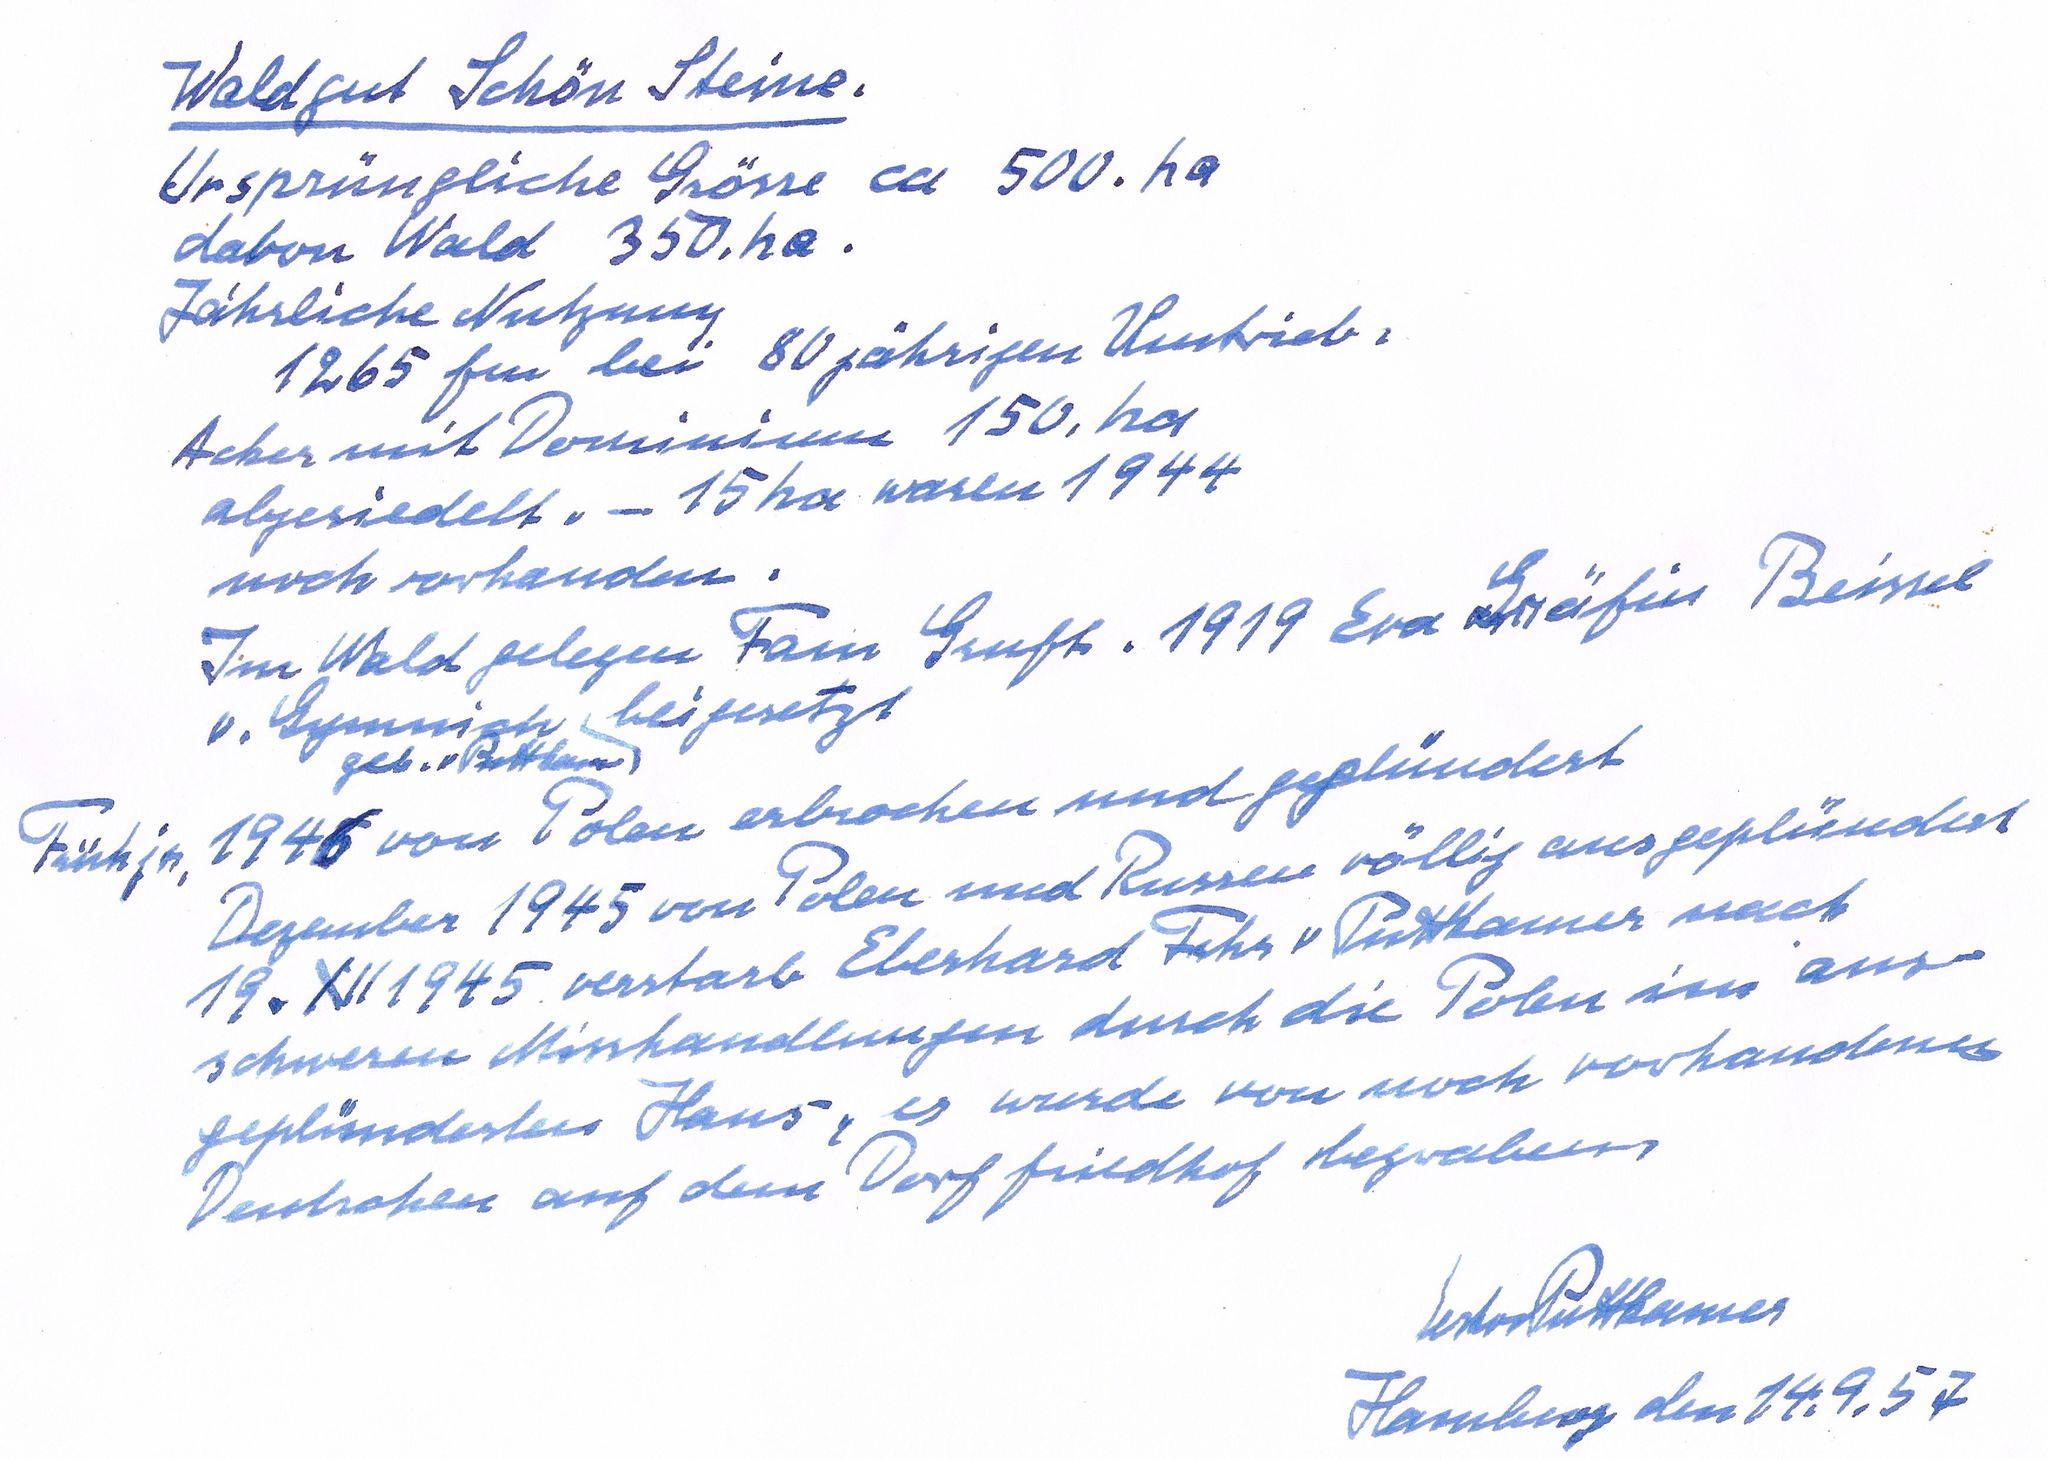 Waldgut Schön Steine.
Ursprüngliche Grösse ca 500. ha
davon Wald 350. ha.
Jährliche Nutzung
1265 fm bei 80 jährigen Umtrieb.
Acker mit Dominium 150. ha
abgesiedelt. – 15 ha waren 1944
noch vorhanden.
Im Wald gelegen Fam Gruft. 1919 Eva Gräfin Beissel
v. Gymnich beigesetzt
geb. v Puttkam
Frühjr. 1946 von Polen erbrochen und geplündert
Dezember 1945 von Polen und Russen völlig ausgeplündert
19. XII 1945 verstarb Eberhard Frhr v Puttkamer nach
schweren Misshandlungen durch die Polen im aus-
geplünderten Haus, er wurde von noch vorhandenen
Deutschen auf dem Dorffriedhof begraben
Puttkamer
Hamburg den 14.9.57